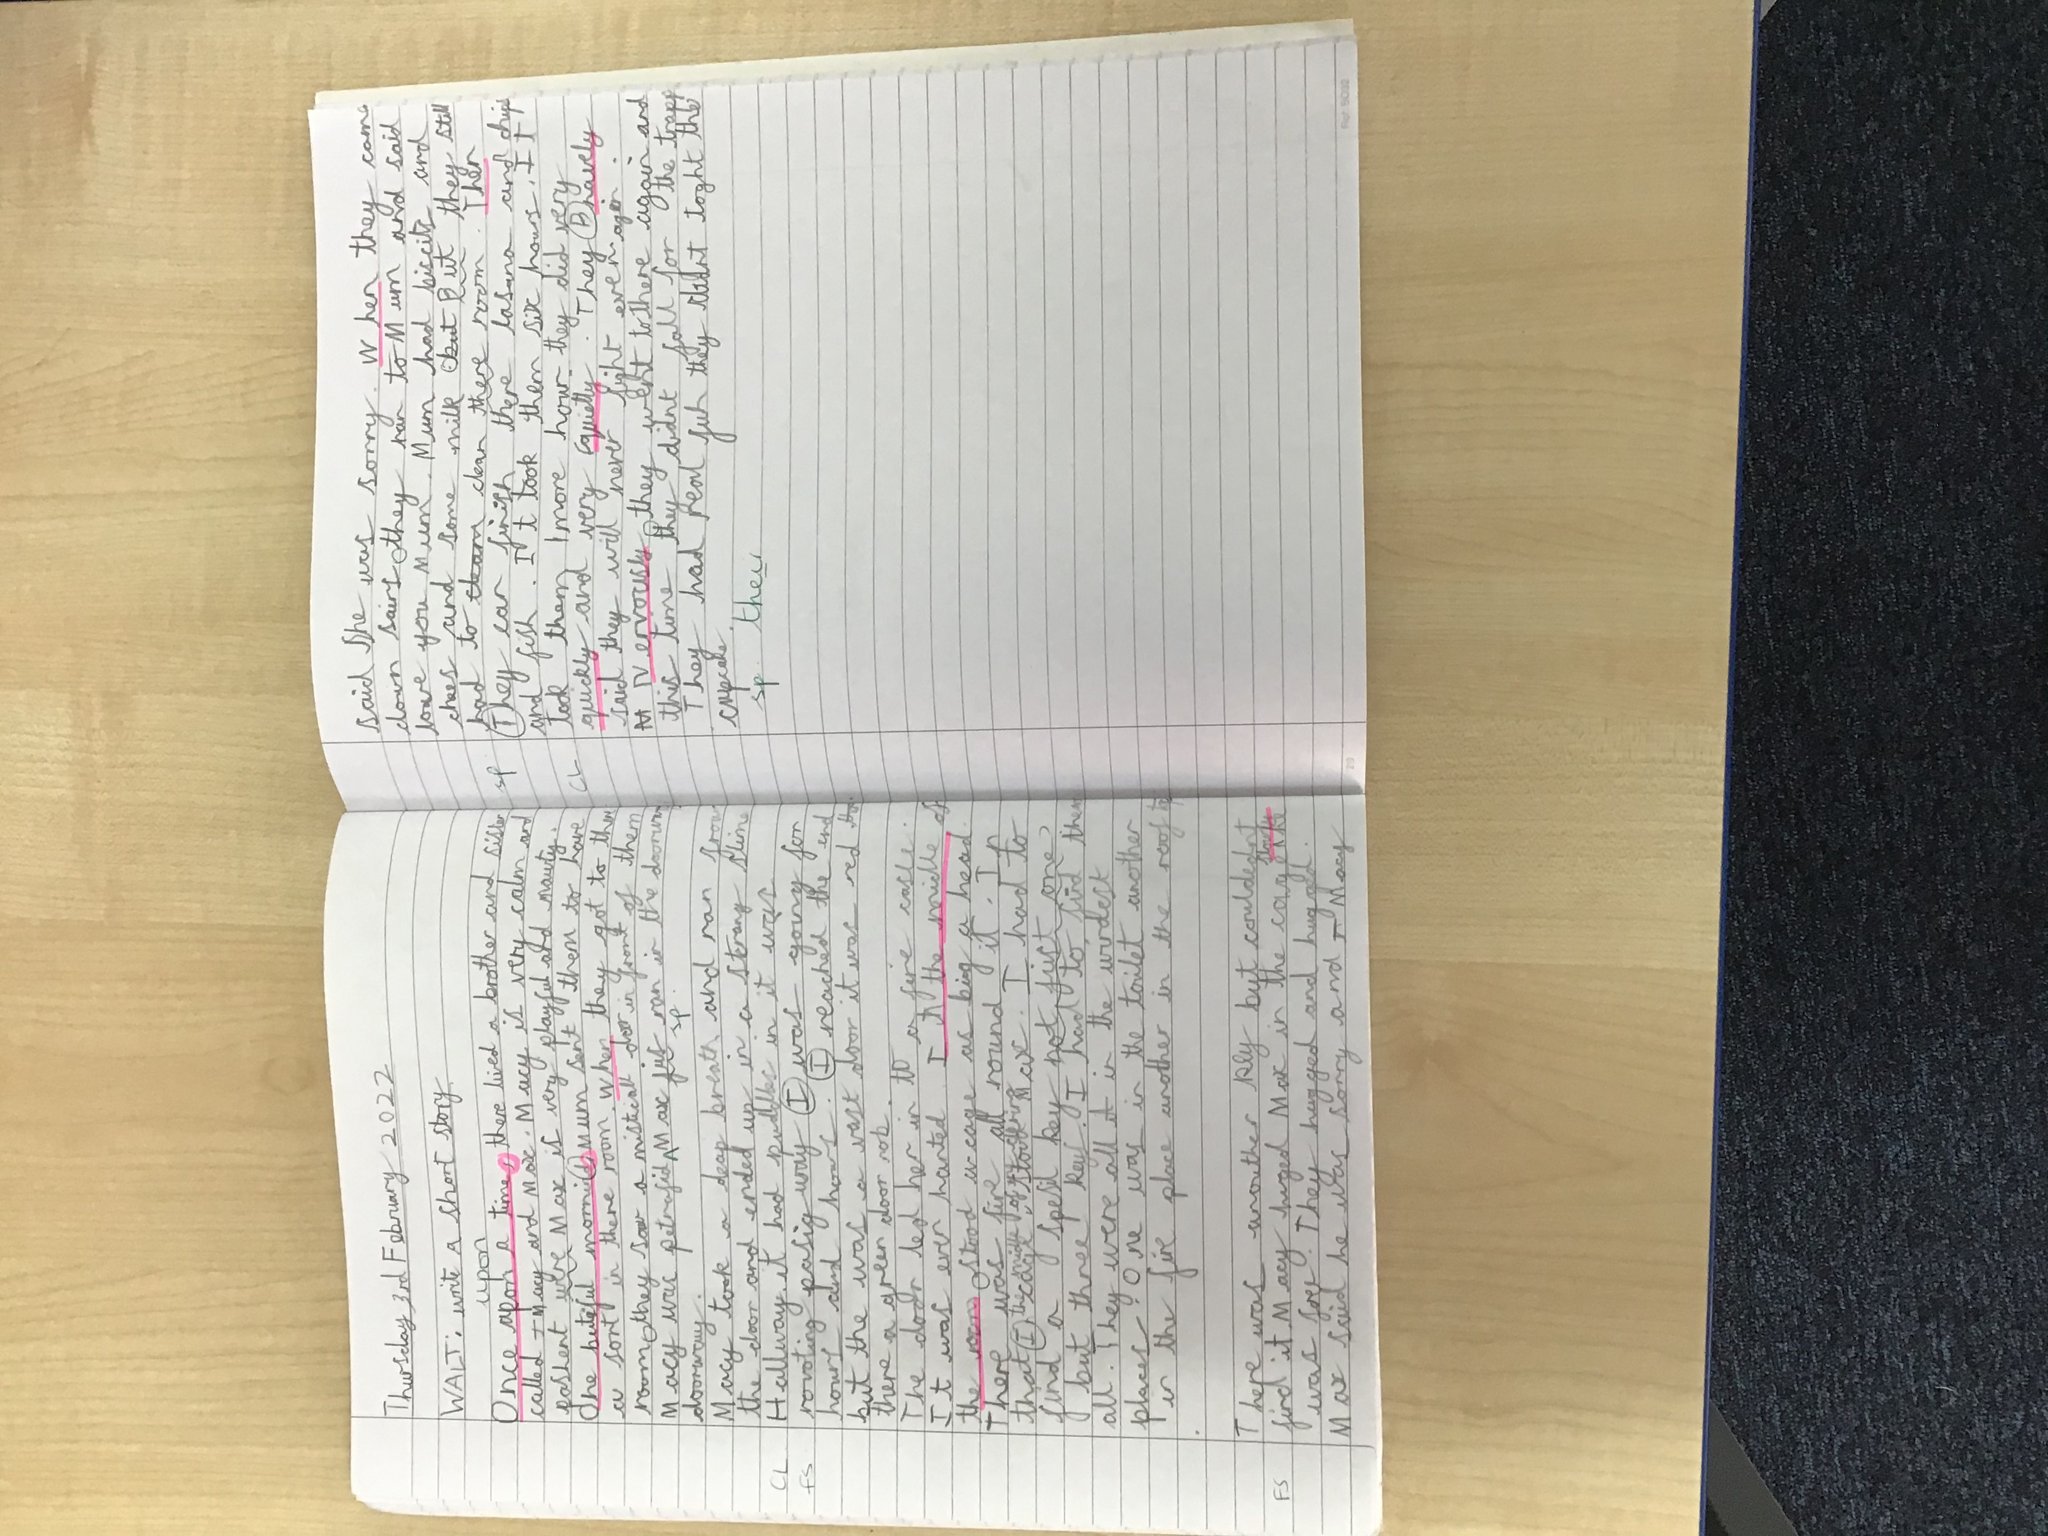 Thursday 3rd February 2022
WALT: write a short story
upon
Once apon a time, there lived a brother and sister
called Macy and Max. Macy is very calm and
pashent were Max is very playful and nauty.
One buteful morning, mum sent them to have
a sort in there room. When they got to there
room, they saw a mistical door in front of them
Macy was petrafid Max just ran in the doorway
sp
doorway.
Macy took a deap breath and ran
the door and ended up in a strang slime
CL Hallway it had pudlles in it it was
FS rotating pasig way I was going for
hours and hours. I reached the end
but the was a vast door it was red
there a green door nob.
The door led her in to a fire castle.
It was even hanted. In the midlle of
the room, stood a cage as big a head.
There was fire all round it. In
that I the cage, Max. I had to
find a speshl key not just one
but three keys. I had to find them
all. They were all in the
places. One was in the toilet another
in the fire place another in the roof
.
There was another key but couldednt
FS find it Macy huged Max in the cage
was joy. They hugged and huged.
Max said he was sorry and Macy
said she was sorry. When they came
down sairs, they ran to Mum and said
love you Mum. Mum had biscits and
chees and some milk but But they still
sp had to clean there room. Then
They can finish there lasana and chips
and fish. It took them six hours. It
CL took them 1 more hour they did very
quickly and very quietly. They Bravely
said they will never fight even agen.
Nervously, they went to there again and
this time they didnt fall for the trapp
They had real fun they
cupcake.
sp. their